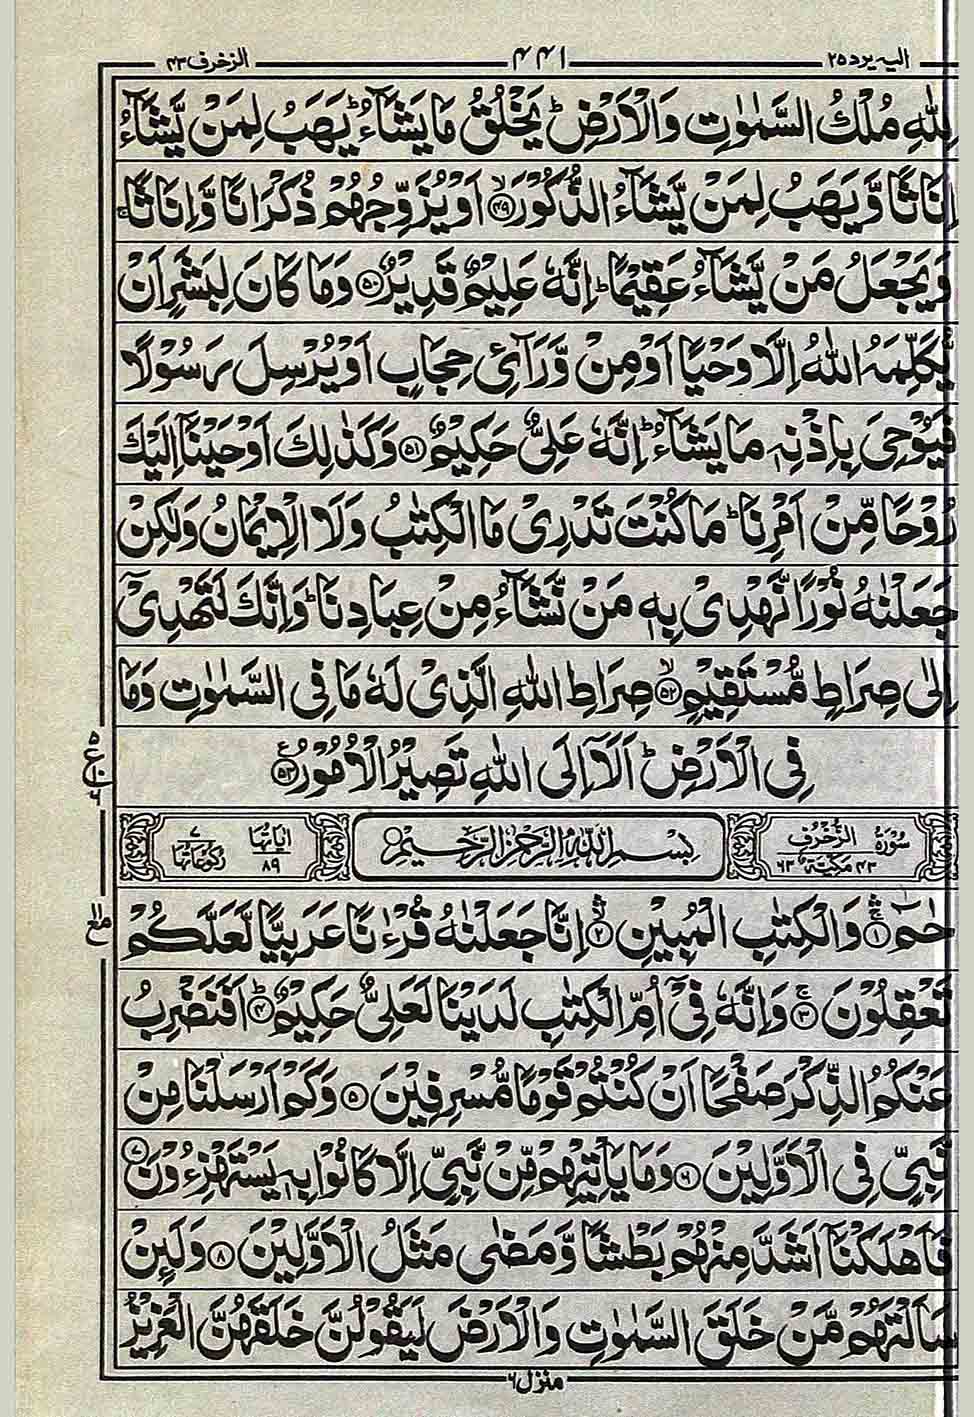 الیہ یرد ٢٥ ۴۴۱ الزخرف ۴۳
لِلّٰهِ مُلْكُ السَّمٰوٰتِ وَالْاَرْضِ ؕ یَخْلُقُ مَا یَشَآءُ ؕ یَهَبُ لِمَنْ یَّشَآءُ
اِنَاثًا وَّیَهَبُ لِمَنْ یَّشَآءُ الذُّكُوْرَ ۙ﴿۴۹﴾ اَوْ یُزَوِّجُهُمْ ذُكْرَانًا وَّاِنَاثًا ۚ
وَیَجْعَلُ مَنْ یَّشَآءُ عَقِیْمًا ؕ اِنَّهٗ عَلِیْمٌ قَدِیْرٌ ﴿۵۰﴾ وَمَا كَانَ لِبَشَرٍ اَنْ
یُّكَلِّمَهُ اللّٰهُ اِلَّا وَحْیًا اَوْ مِنْ وَّرَآئِ حِجَابٍ اَوْ یُرْسِلَ رَسُوْلًا
فَیُوْحِیَ بِاِذْنِهٖ مَا یَشَآءُ ؕ اِنَّهٗ عَلِیٌّ حَكِیْمٌ ﴿۵۱﴾ وَكَذٰلِكَ اَوْحَیْنَاۤ اِلَیْكَ
رُوْحًا مِّنْ اَمْرِنَا ؕ مَا كُنْتَ تَدْرِیْ مَا الْكِتٰبُ وَلَا الْاِیْمَانُ وَلٰكِنْ
جَعَلْنٰهُ نُوْرًا نَّهْدِیْ بِهٖ مَنْ نَّشَآءُ مِنْ عِبَادِنَا ؕ وَاِنَّكَ لَتَهْدِیْۤ
اِلٰی صِرَاطٍ مُّسْتَقِیْمٍ ۙ﴿۵۲﴾ صِرَاطِ اللّٰهِ الَّذِیْ لَهٗ مَا فِی السَّمٰوٰتِ وَمَا
فِی الْاَرْضِ ؕ اَلَاۤ اِلَی اللّٰهِ تَصِیْرُ الْاُمُوْرُ ﴿۵۳﴾
۵ ع ۶
سُوْرَةُ الزُّخْرُفِ ۴۳ مَكِّیَّةٌ ۶۳
بِسْمِ اللّٰهِ الرَّحْمٰنِ الرَّحِیْمِ
اٰیَاتُهَا ۸۹
۷ رُكُوْعَاتُهَا
حٰمٓ ۚۛ﴿۱﴾ وَالْكِتٰبِ الْمُبِیْنِ ۙۛ﴿۲﴾ اِنَّا جَعَلْنٰهُ قُرْءٰنًا عَرَبِیًّا لَّعَلَّكُمْ
تَعْقِلُوْنَ ۚ﴿۳﴾ وَاِنَّهٗ فِیْۤ اُمِّ الْكِتٰبِ لَدَیْنَا لَعَلِیٌّ حَكِیْمٌ ؕ﴿۴﴾ اَفَنَضْرِبُ
عَنْكُمُ الذِّكْرَ صَفْحًا اَنْ كُنْتُمْ قَوْمًا مُّسْرِفِیْنَ ﴿۵﴾ وَكَمْ اَرْسَلْنَا مِنْ
نَّبِیٍّ فِی الْاَوَّلِیْنَ ﴿۶﴾ وَمَا یَاْتِیْهِمْ مِّنْ نَّبِیٍّ اِلَّا كَانُوْا بِهٖ یَسْتَهْزِءُوْنَ ﴿۷﴾
فَاَهْلَكْنَاۤ اَشَدَّ مِنْهُمْ بَطْشًا وَّمَضٰی مَثَلُ الْاَوَّلِیْنَ ﴿۸﴾ وَلَىِٕنْ
سَاَلْتَهُمْ مَّنْ خَلَقَ السَّمٰوٰتِ وَالْاَرْضَ لَیَقُوْلُنَّ خَلَقَهُنَّ الْعَزِیْزُ
منزل ۶